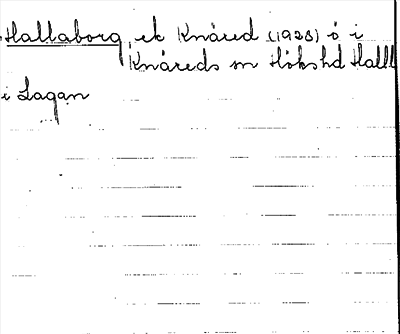 Hallaborg, ek Knäred (1928) ö i
Knäreds sn Hökshd Hall
i Lagan